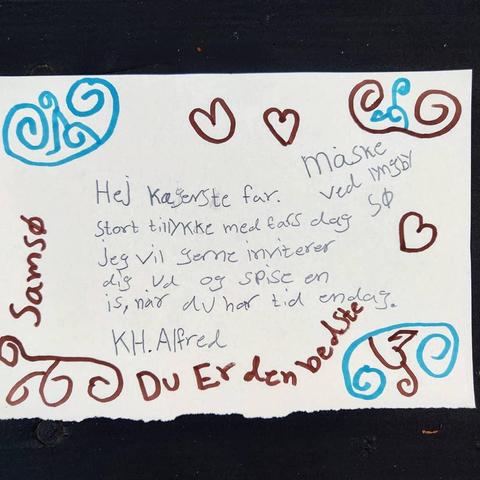 Hej kagerste far.
Måske
ved lyngby
sø
stort tillykke med fars dag
jeg vil gerne inviterer
dig ud og spise en
is, når du har tid endag.
KH. Alfred
Samsø
Du Er den bedste